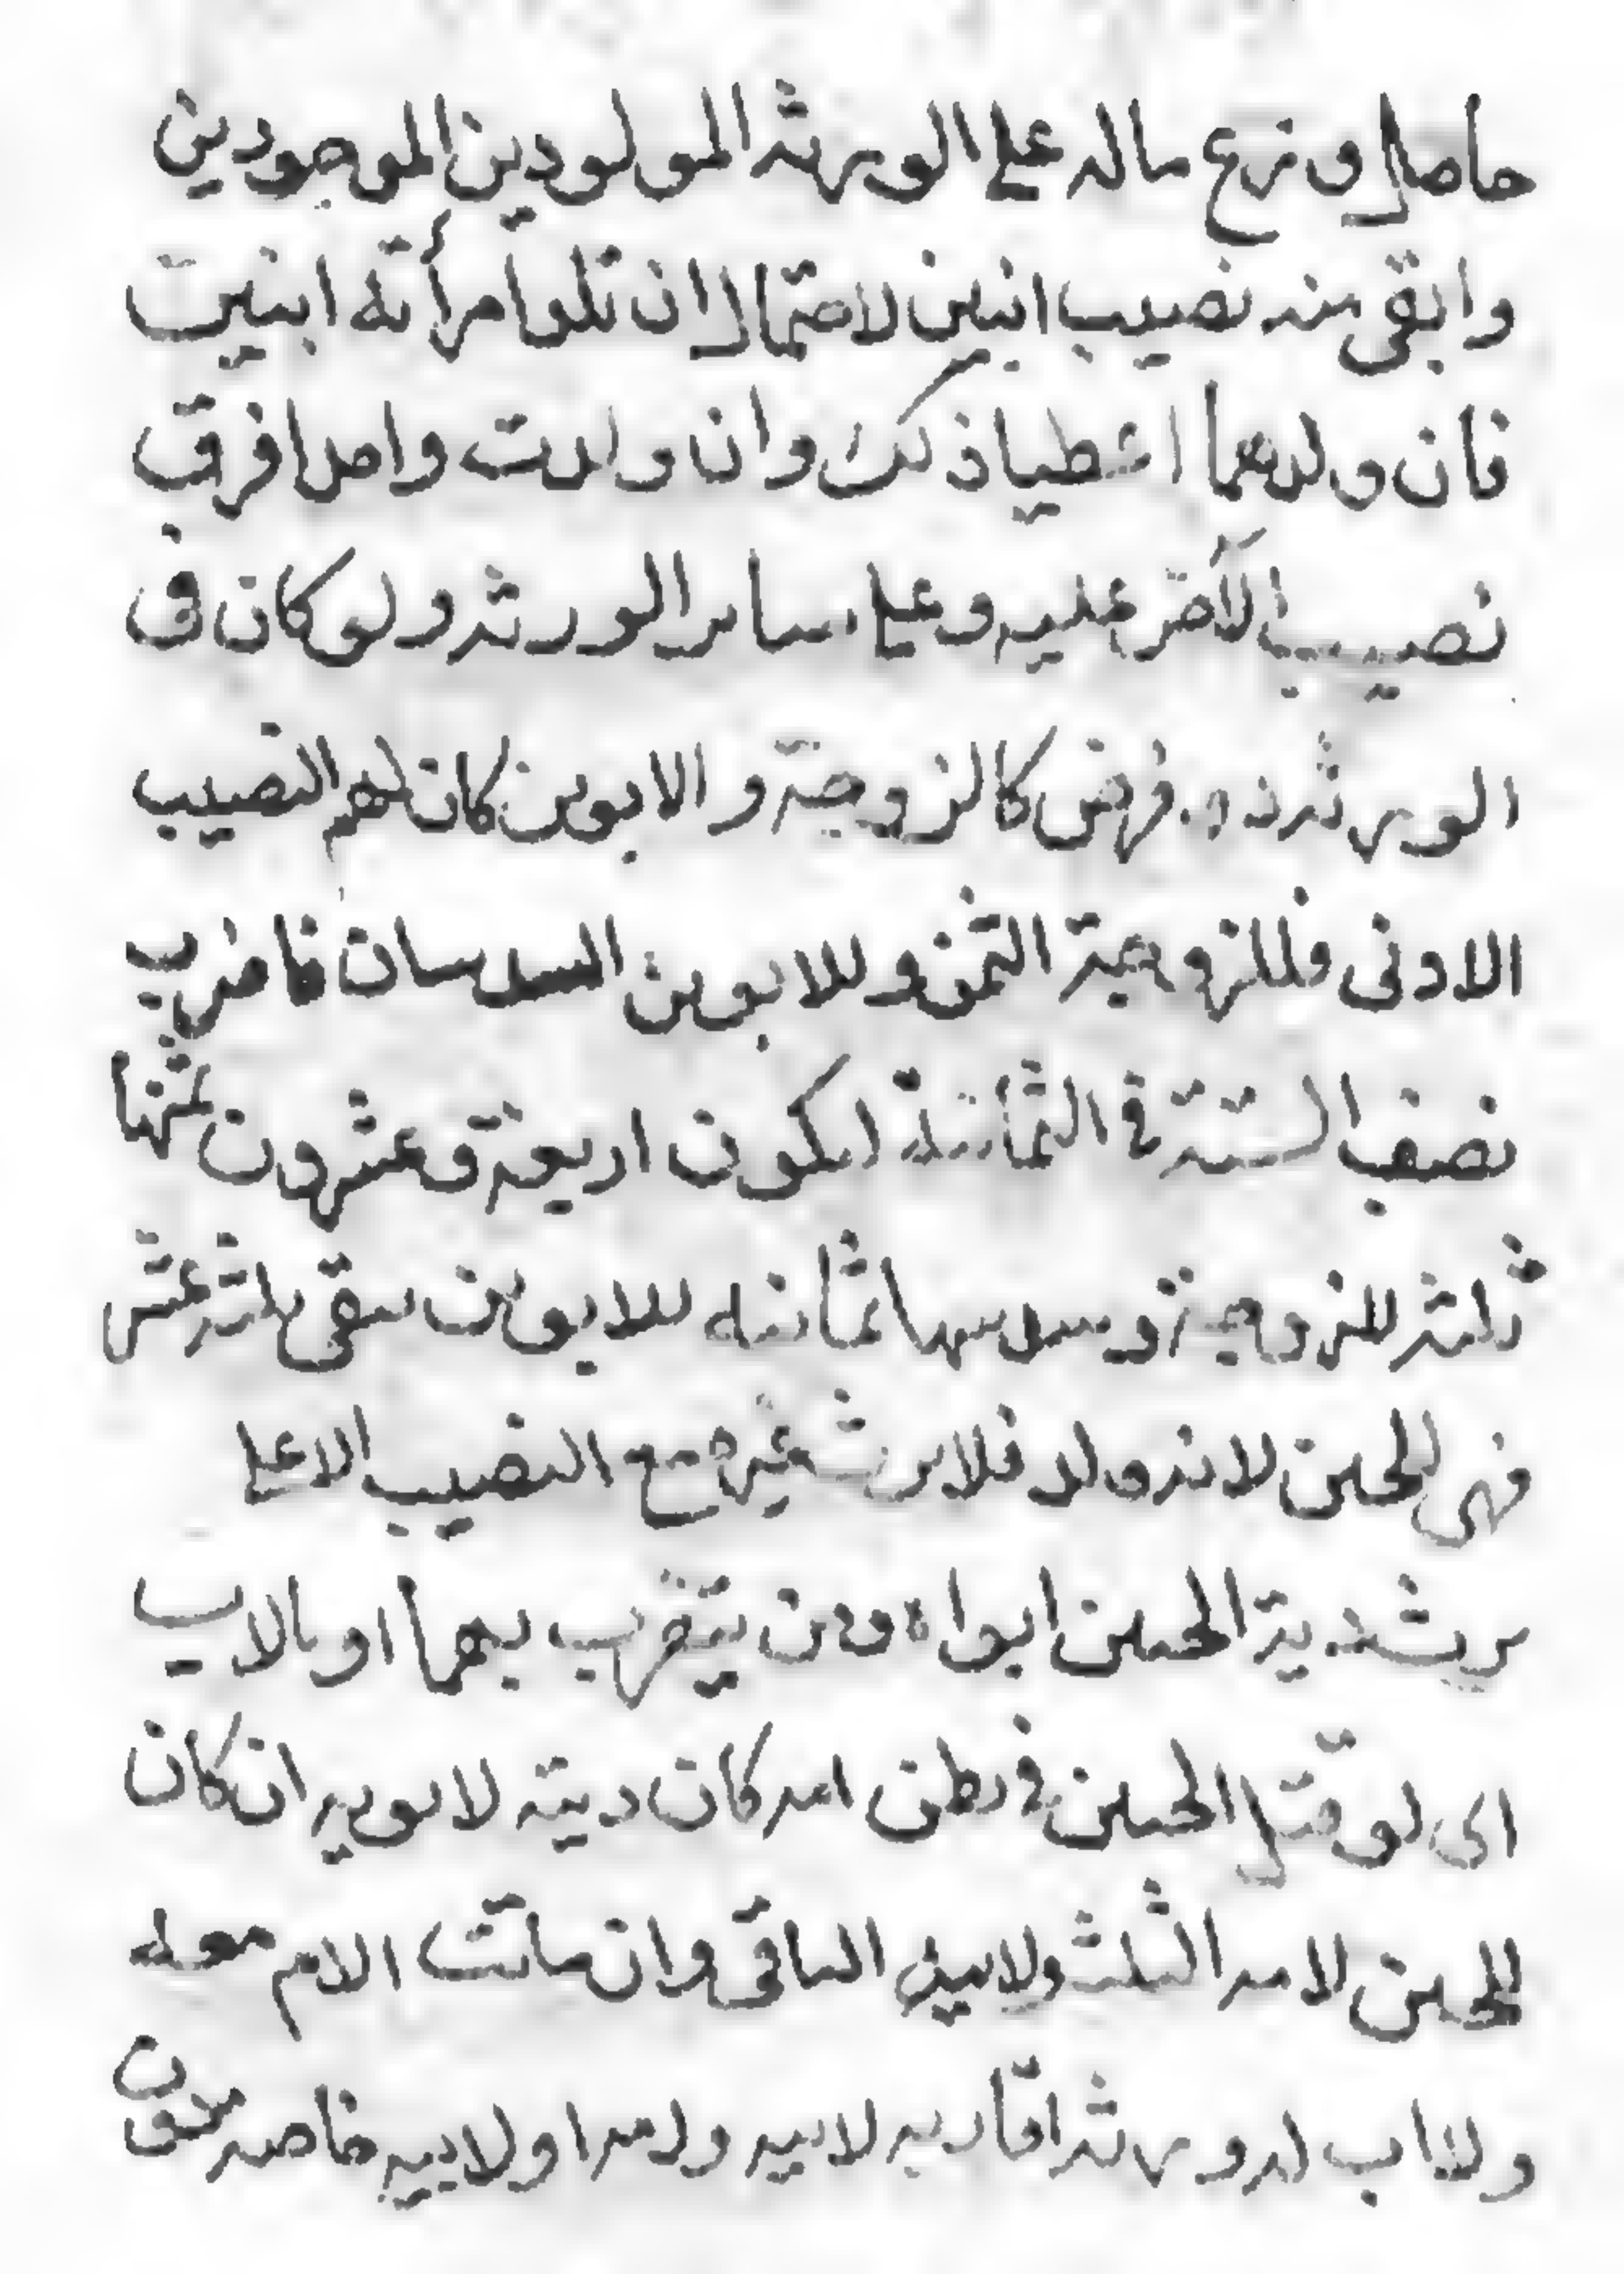 حاصل وزع ماله على الورثه المولودين الموجودين
وابقى منه نصيب ابنين لاحتمال ان تلد امرأته ابنين
فان ولدهما اعطيا ذلك وان ولدت واحدا فرق
نصيب الآخر عليه وعلى ساير الورثه ولو كان فى
الورثه ذو فرض كالزوجة والابوين كان لهم النصيب
الادنى فللزوجة الثمن وللابوين السدسان فاضرب
نصف الستة فى الثمانية ليكون اربعة وعشرون ثمنها
ثلثه للزوجة وسدسها ثمانيه للابوين يبقى ثلثه عشر
فهى للجنين لانه ولد فلا يرث غيره مع النصيب الاعلى
يرث دية الجنين ابواه ومن يتقرب بهما او بالاب
اى لو قتل الجنين فى بطن امه كان ديته لابويه ان كان
الجنين لامه الثلث ولابيه الباقى وان ماتت الام معه
ولا اب له ورثه اقاربه لابيه ولامه او لابيه خاصه دون